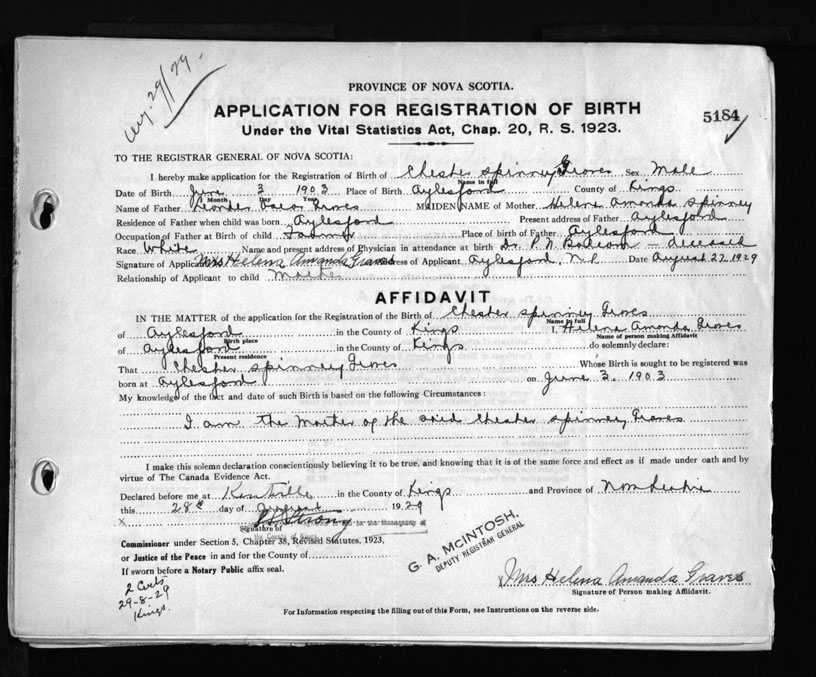 Aug. 29/29.
PROVINCE OF NOVA SCOTIA.
APPLICATION FOR REGISTRATION OF BIRTH
5184
Under the Vital Statistics Act, Chap. 20, R. S. 1923.
TO THE REGISTRAR GENERAL OF NOVA SCOTIA:
I hereby make application for the Registration of Birth of Chester Spinney Graves Sex Male
Name in full
Date of Birth June 3 1903 Place of Birth Aylesford County of Kings
Month Day Year
Name of Father Graves MAIDEN NAME of Mother Helena Amanda Spinney
Residence of Father when child was born Aylesford Present address of Father Aylesford
Occupation of Father at Birth of child Place of birth of Father Aylesford
Race White Name and present address of Physician in attendance at birth Dr. P. N. — deceased
Signature of Applicant Mrs Helena Amanda Graves Address of Applicant Aylesford, N.S. Date August 27 1929
Relationship of Applicant to child
AFFIDAVIT
IN THE MATTER of the application for the Registration of the Birth of Chester Spinney Graves
Name in full
of Aylesford in the County of Kings I, Helena Amanda Graves
Birth place
Name of person making Affidavit
of Aylesford in the County of Kings do solemnly declare:
Present residence
That Chester Spinney Graves Whose Birth is sought to be registered was
born at Aylesford on June 3, 1903
My knowledge of the fact and date of such Birth is based on the following Circumstances:
I am the Mother of the said Chester Spinney Graves
I make this solemn declaration conscientiously believing it to be true, and knowing that it is of the same force and effect as if made under oath and by
virtue of The Canada Evidence Act.
Declared before me at Kentville in the County of Kings and Province of Nova Scotia
this 28th day of August 1929
X Strong
Signature of
Commissioner under Section 5, Chapter 38, Revised Statutes, 1923,
or Justice of the Peace in and for the County of
If sworn before a Notary Public affix seal.
G. A. McINTOSH,
DEPUTY REGISTRAR GENERAL
Mrs Helena Amanda Graves
Signature of Person making Affidavit.
2 Certs
29-8-29
Kings.
For Information respecting the filling out of this Form, see Instructions on the reverse side.